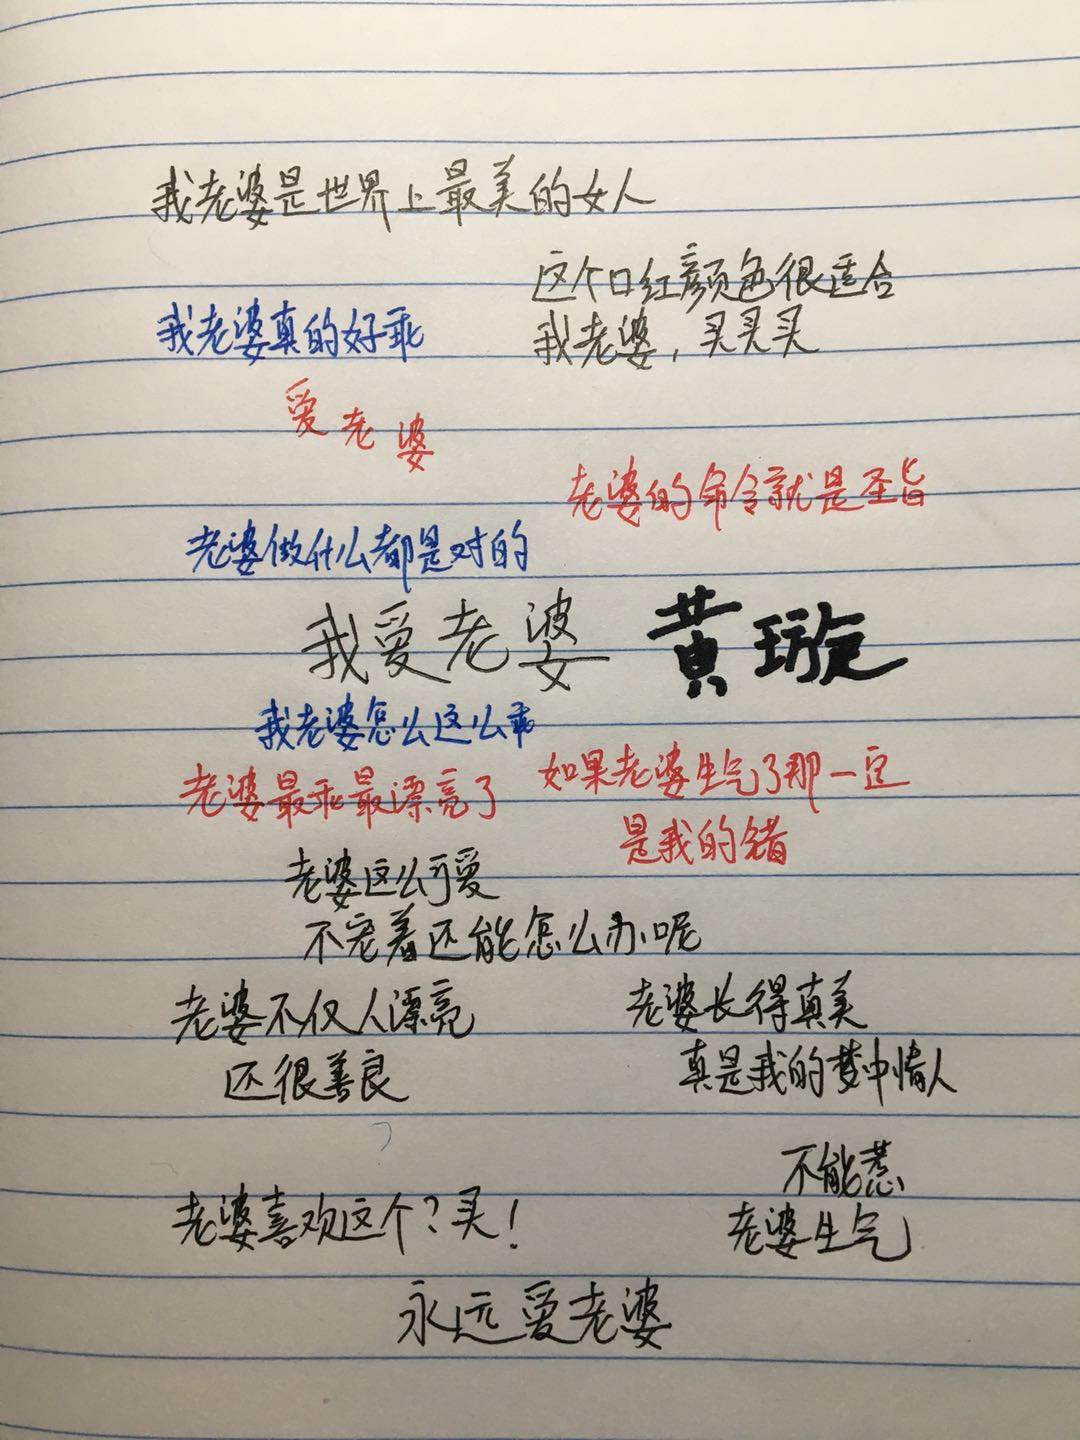 我老婆是世界上最美的女人
这个口红颜色很适合
我老婆，买买买
我老婆真的好乖
爱老婆
老婆的命令就是圣旨
老婆做什么都是对的
我爱老婆 黄璇
我老婆怎么这么乖
老婆最乖最漂亮了
如果老婆生气了那一定
是我的错
老婆这么可爱
不宠着还能怎么办呢
老婆不仅人漂亮
还很善良
老婆长得真美
真是我的梦中情人
不能惹
老婆生气
老婆喜欢这个？买！
永远爱老婆